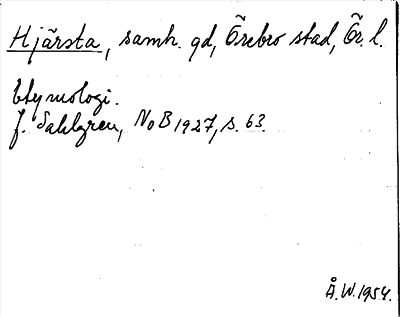 Hjärsta, samh. gd, Örebro stad, Ör. l.
Etymologi.
J. Sahlgren, NoB 1927, s. 63.
Å. W. 1954.